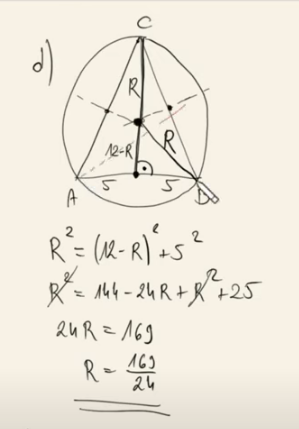 d)
C
R
R
12-R
A
5
5
B
R² = (12-R)² + 5²
R² = 144 - 24R + R² + 25
24R = 169
R = 169/24